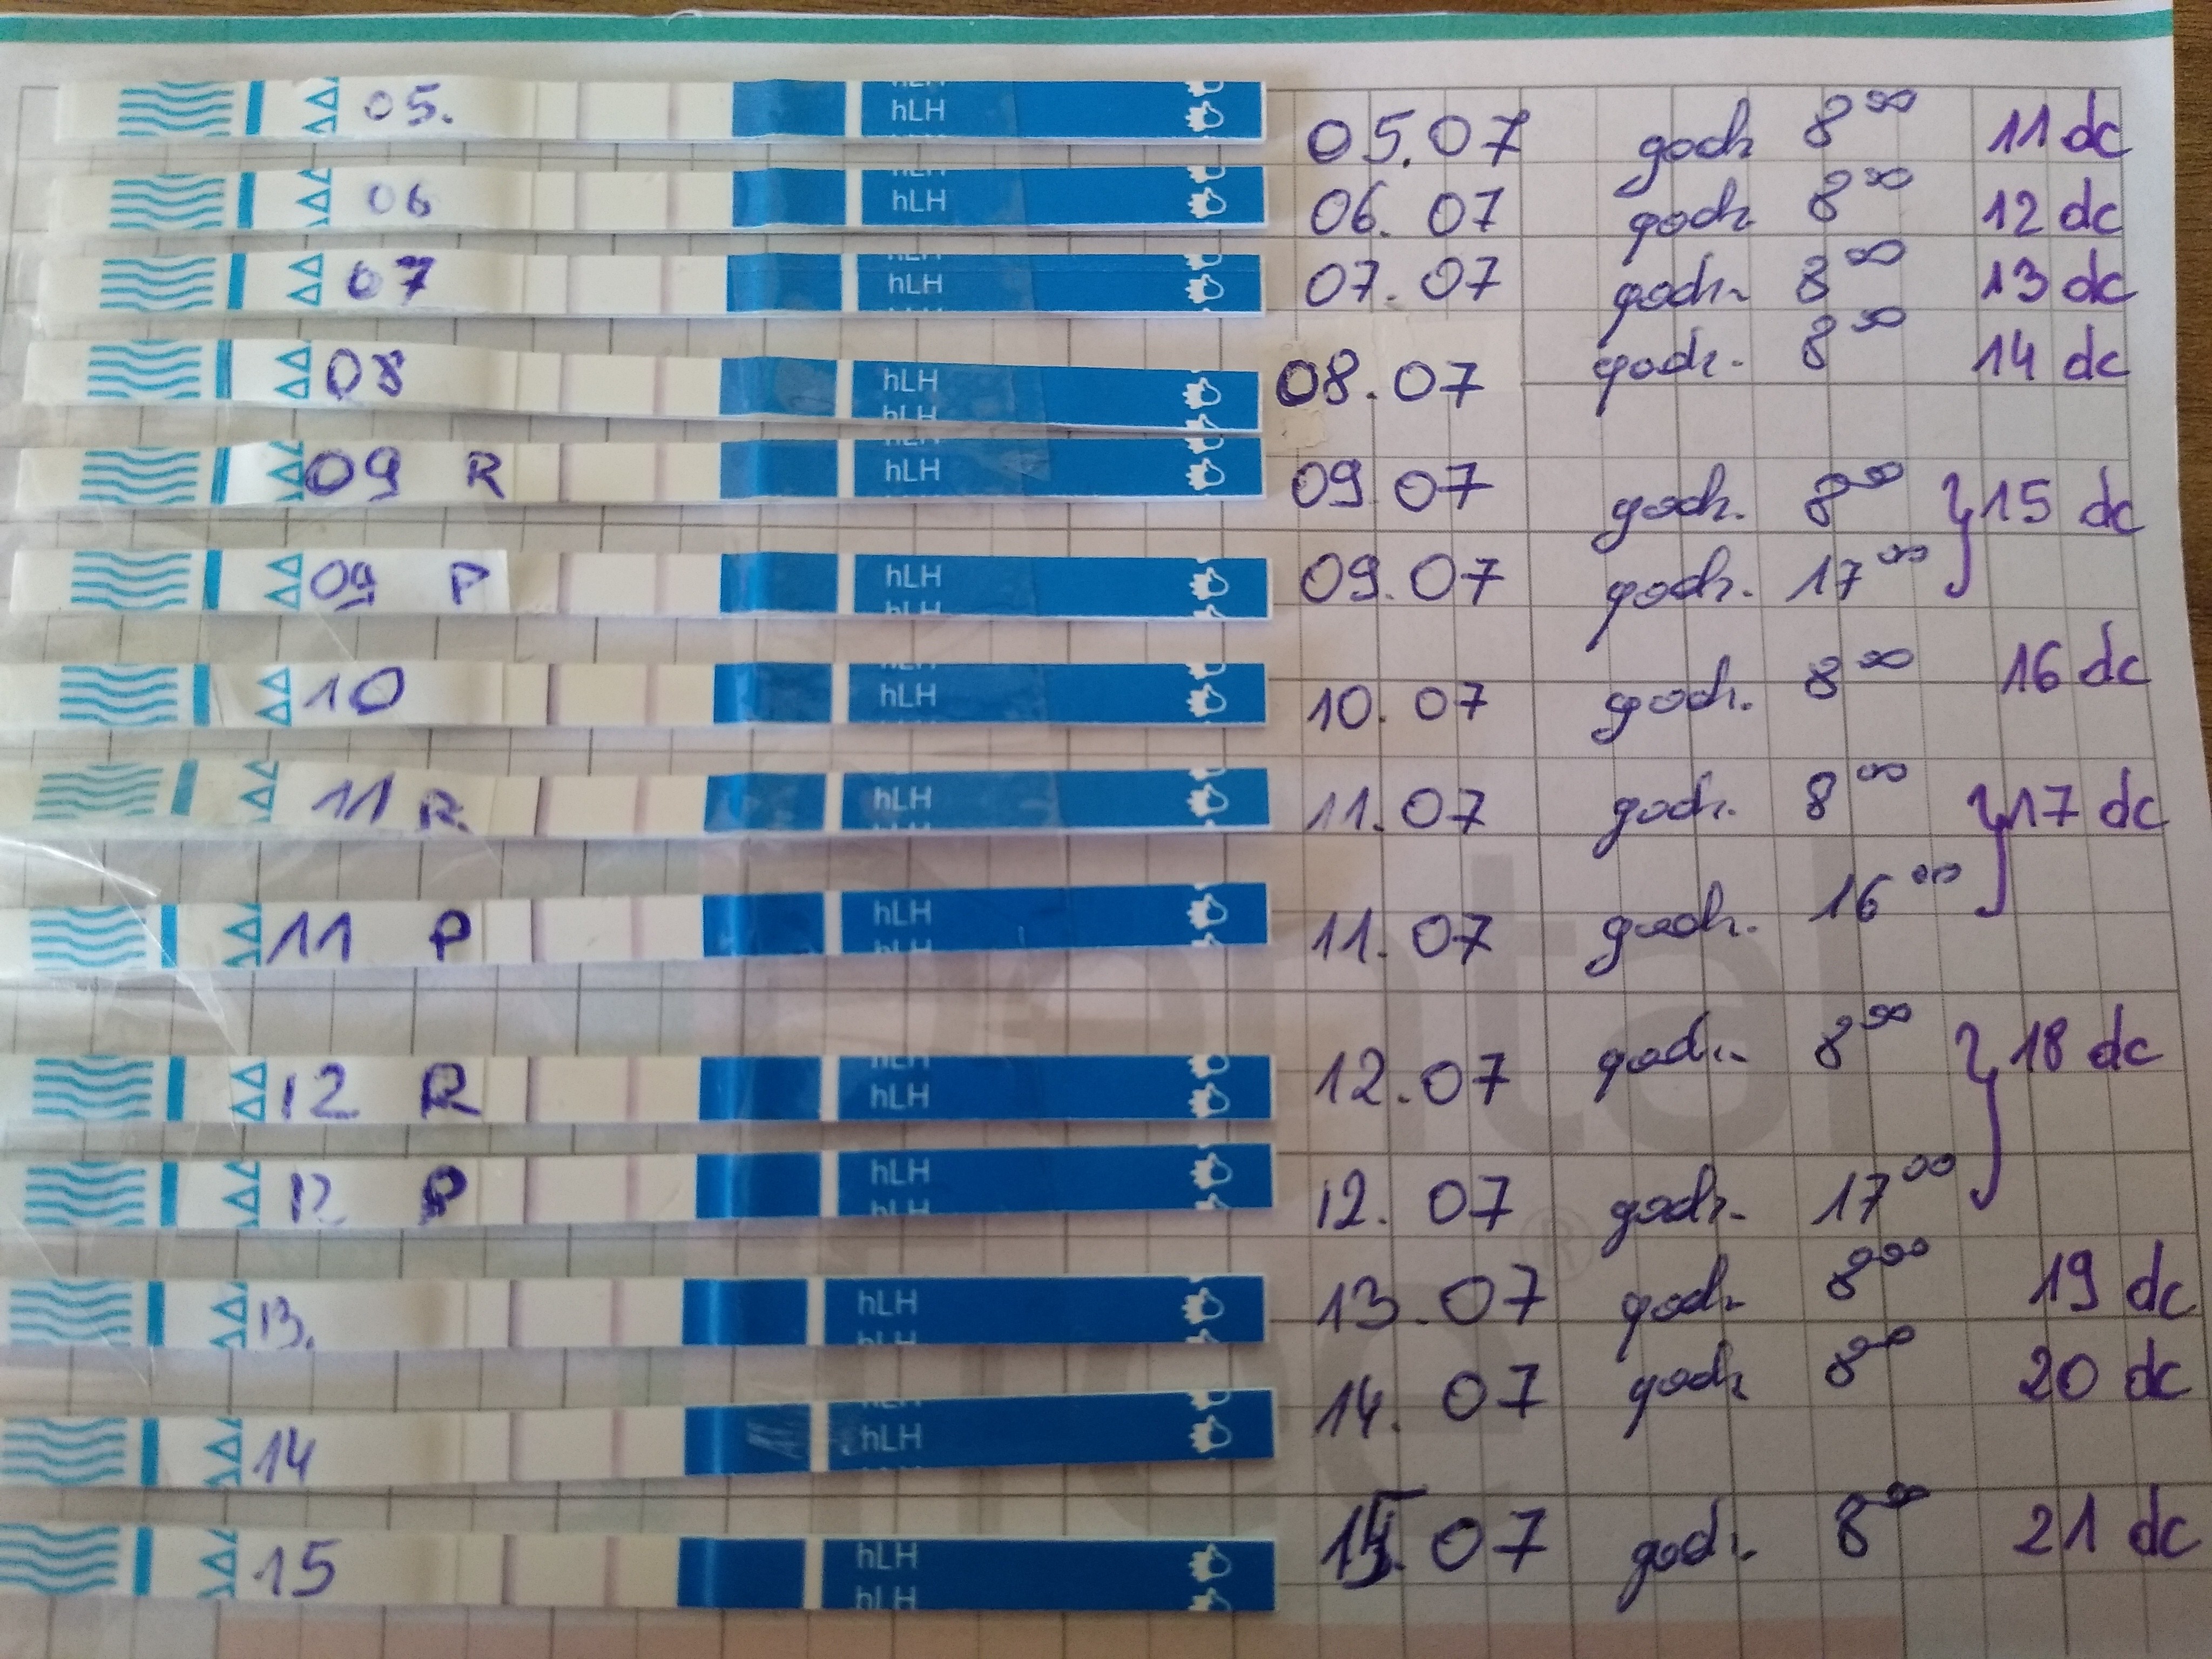 05. hLH 05.07 godz 8⁰⁰ 11 dc
06 hLH 06.07 godz. 8⁰⁰ 12 dc
07 hLH 07.07 godz. 8⁰⁰ 13 dc
08 hLH 08.07 godz. 8⁰⁰ 14 dc
hLH
09 R hLH 09.07 godz. 8⁰⁰ 15 dc
09 P hLH 09.07 godz. 17⁰⁰
hLH
10 hLH 10.07 godz. 8⁰⁰ 16 dc
11 R. hLH 11.07 godz. 8⁰⁰ 17 dc
11 P hLH 11.07 godz. 16⁰⁰
hLH
12 R hLH 12.07 godz. 8⁰⁰ 18 dc
12 P hLH 12.07 godz. 17⁰⁰
hLH
13. hLH 13.07 godz. 8⁰⁰ 19 dc
hLH
14 hLH 14.07 godz 8⁰⁰ 20 dc
15 hLH 15.07 godz. 8⁰⁰ 21 dc
hLH